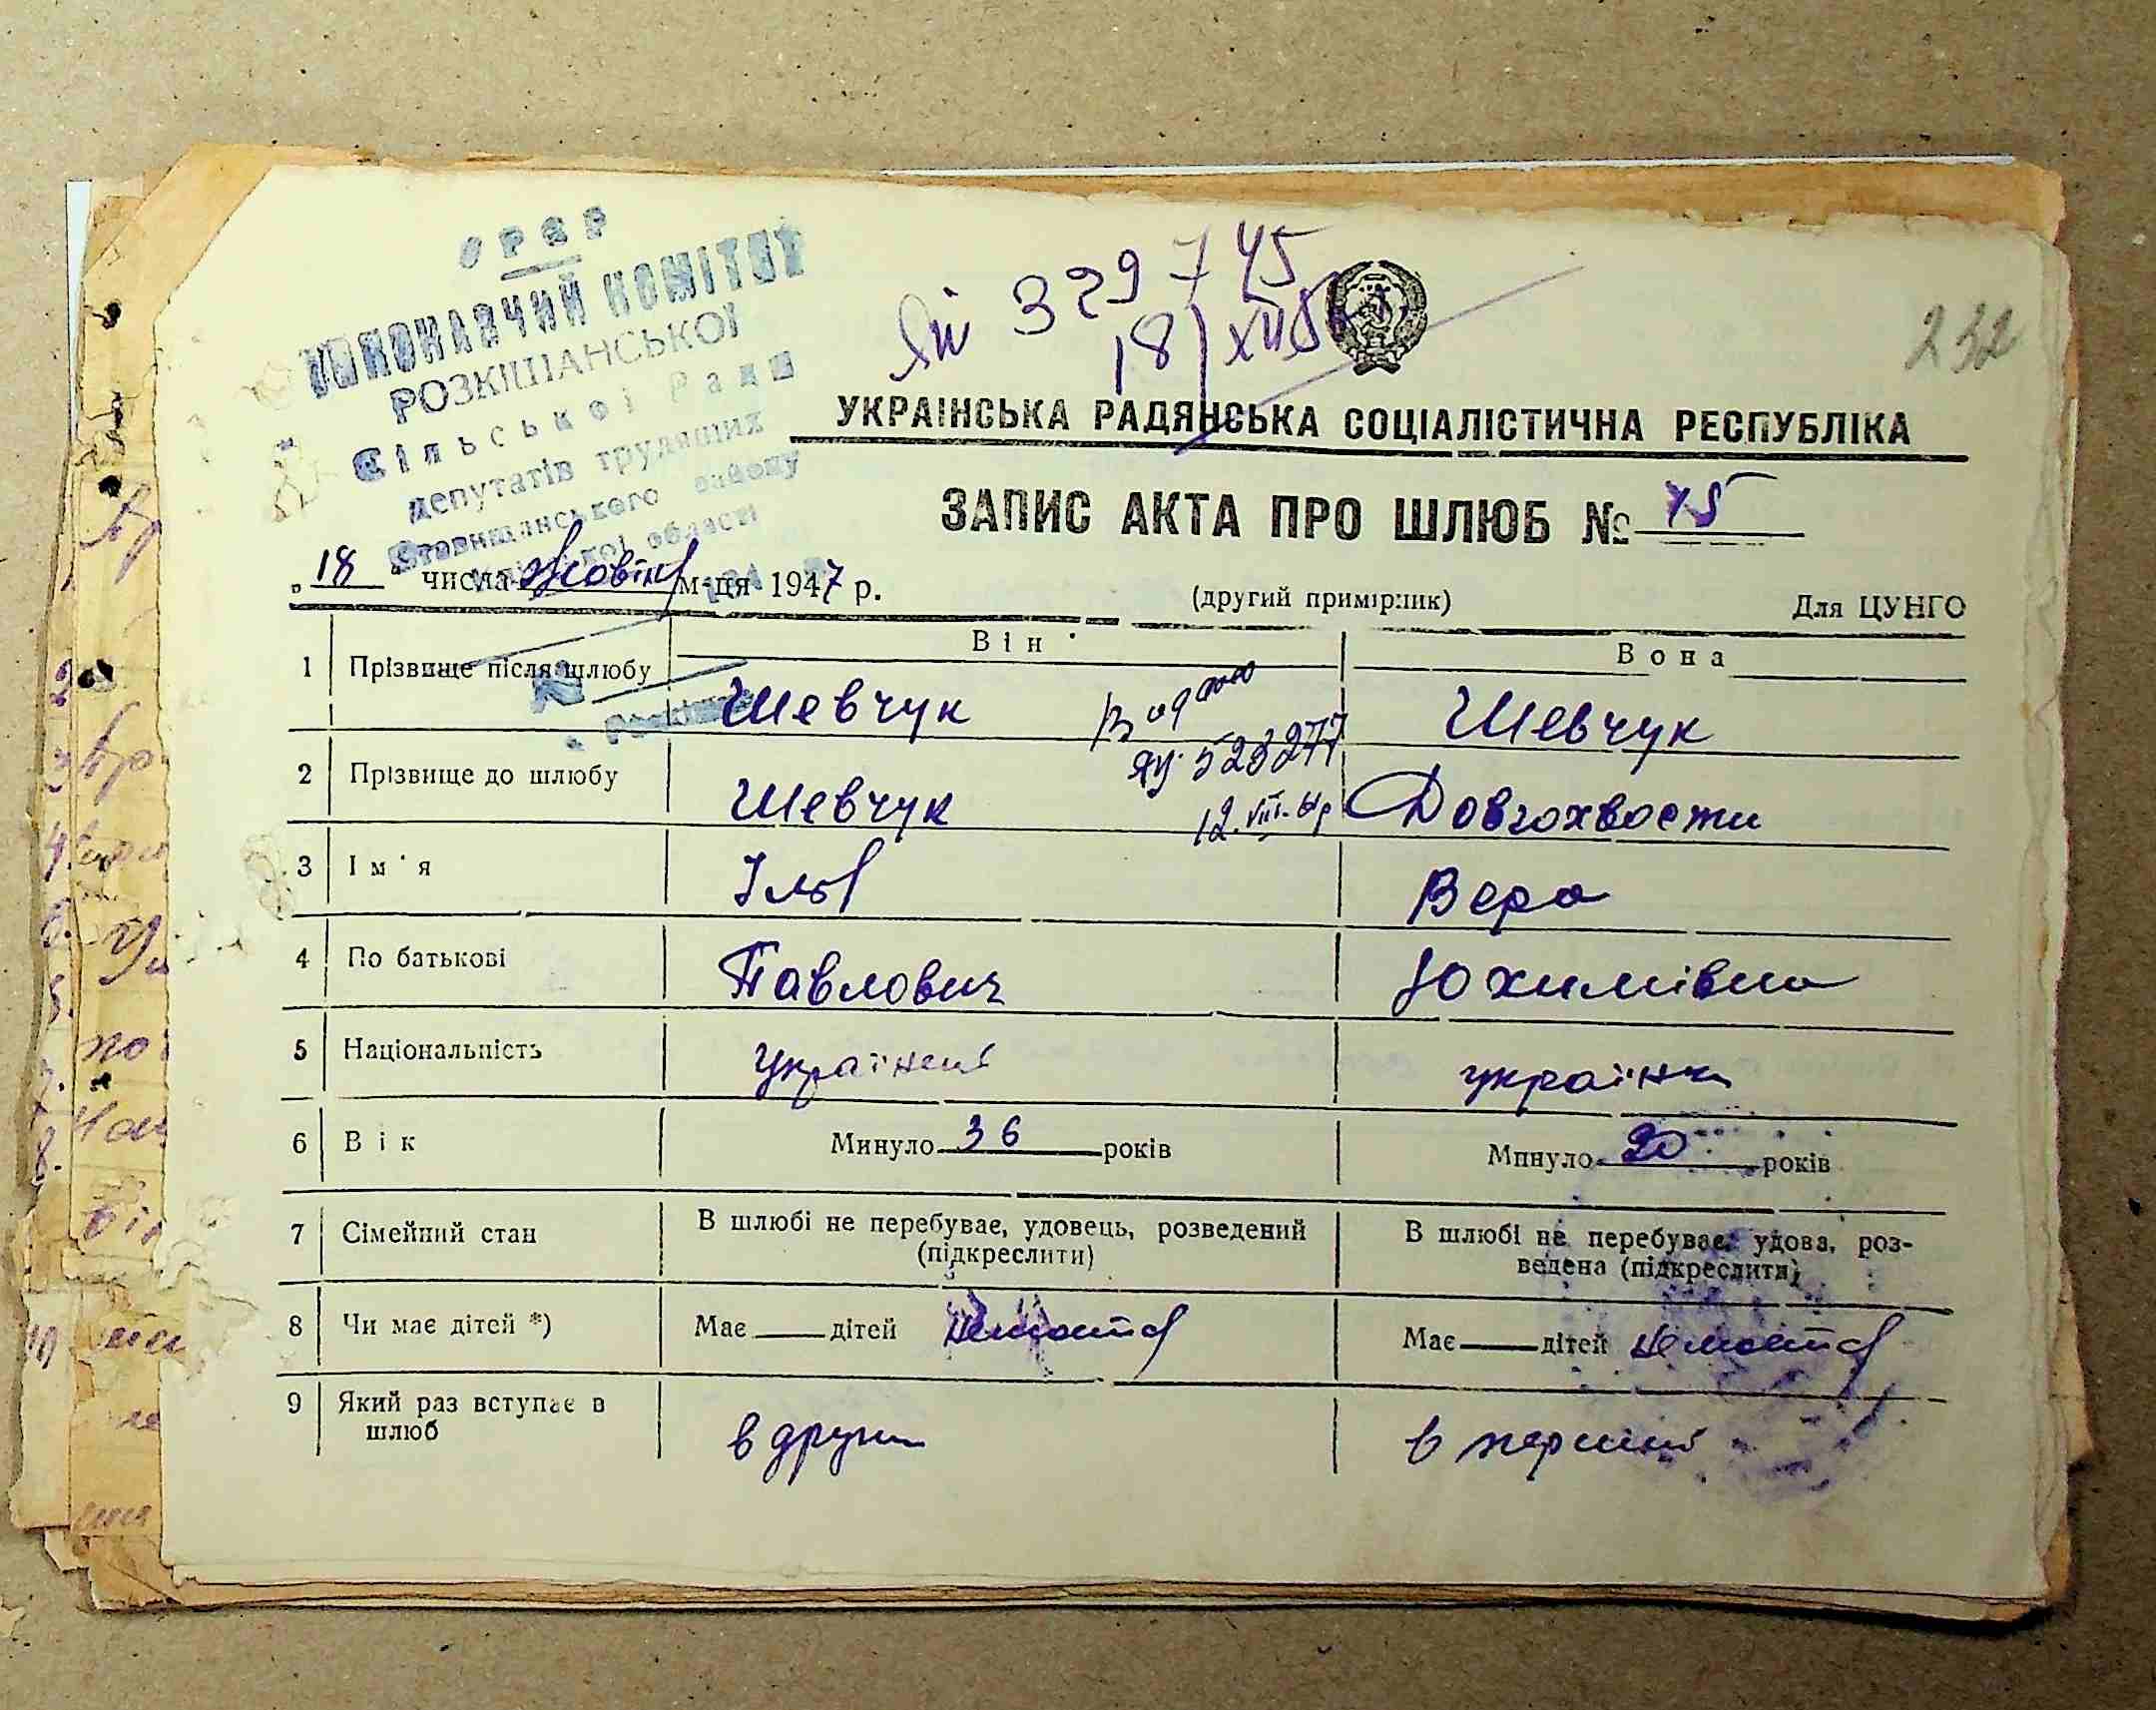 УРСР
ВИКОНАВЧИЙ КОМІТЕТ
РОЗКІШАНСЬКОЇ
Сільської Ради
депутатів трудящих
Ставищанського району
області
329745
18/XII
232
УКРАЇНСЬКА РАДЯНСЬКА СОЦІАЛІСТИЧНА РЕСПУБЛІКА
ЗАПИС АКТА ПРО ШЛЮБ № 75
„18“ числа Жовтня м-ця 1947 р.
(другий примірник)
Для ЦУНГО
Він Вона
1 Прізвище після шлюбу Шевчук Шевчук
Видано
ЯУ 523277
12.VIII.
2 Прізвище до шлюбу Шевчук Довгохвости
3 Ім'я Ілля Вера
4 По батькові Павлович Юхимівна
5 Національність українець українка
6 Вік Минуло 36 років Минуло 20 років
7 Сімейний стан В шлюбі не перебуває, удовець, розведений (підкреслити) В шлюбі не перебуває, удова, роз-
ведена (підкреслити)
8 Чи має дітей *) Має дітей немает Має дітей немает
9 Який раз вступає в шлюб в други в перший